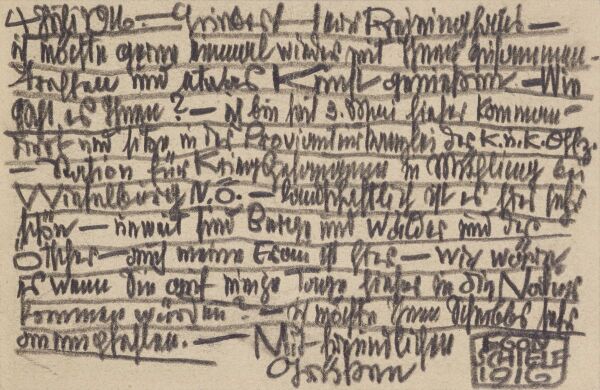 4. Juli 1916 — Liebster Herr Reininghaus —
ich möchte gerne einmal wieder mit Ihnen zusammen-
treffen und etwas Kunst genießen — Wie
geht es Ihnen? — ich bin seit 3. Mai hieher komman-
diert und sitze in der Provianturskanzlei der K.u.k. Offz.
— Station für Kriegsgefangene in Mühling bei
Wieselburg N.Ö. — landschaftlich ist es hier sehr
schön — unweit sind Berge und Wälder und der
Ötscher — auch meine Frau ist hier — wie wäre
es wenn Sie auf einige Tage hieher in die Natur
kommen würden? — ich möchte Ihnen
— Mit freundlichen
Grüßen
EGON
SCHIELE
1916